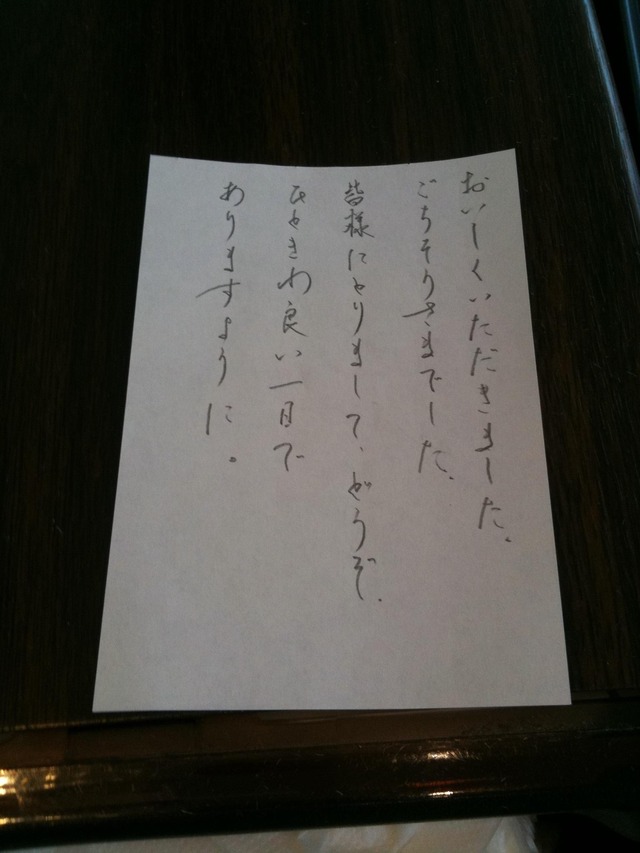 おいしくいただきました、
ごちそうさまでした、
皆様にとりまして、どうぞ、
ひときわ良い一日で
ありますように。